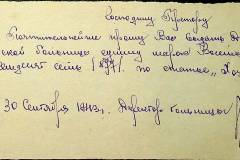 Господину Ректору
Почтительнейше прошу Вас создать
ской больницы сумму марок Восемь
десят семь /87/. по статье „
30 Сентября 1943. Директор больницы